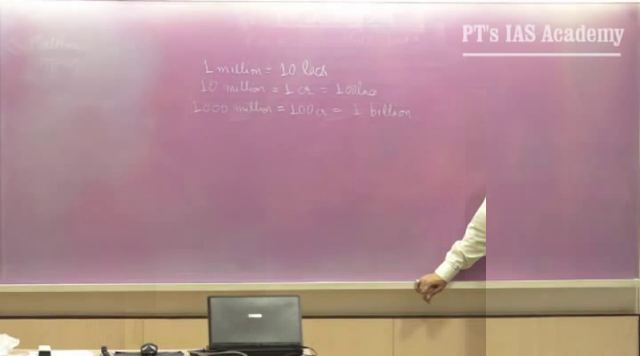 PT's IAS Academy
1 million = 10 lacs
10 million = 1 cr = 100 lacs
1000 million = 100 cr = 1 billion